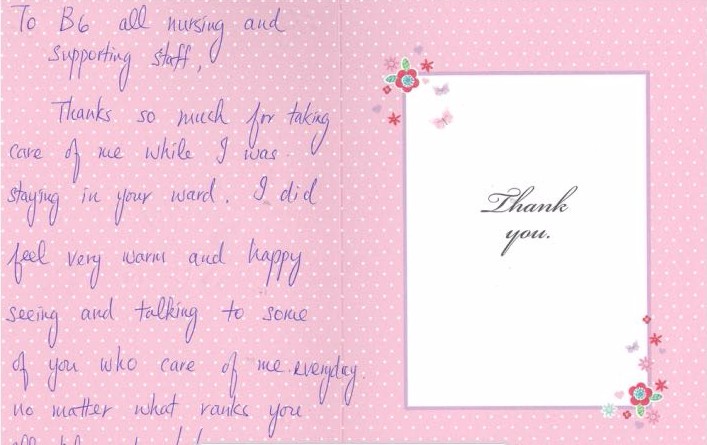 To B6 all nursing and
supporting staff,
Thanks so much for taking
care of me while I was
staying in your ward. I did
feel very warm and happy
seeing and talking to some
of you who care of me everyday
no matter what ranks you
Thank
you.